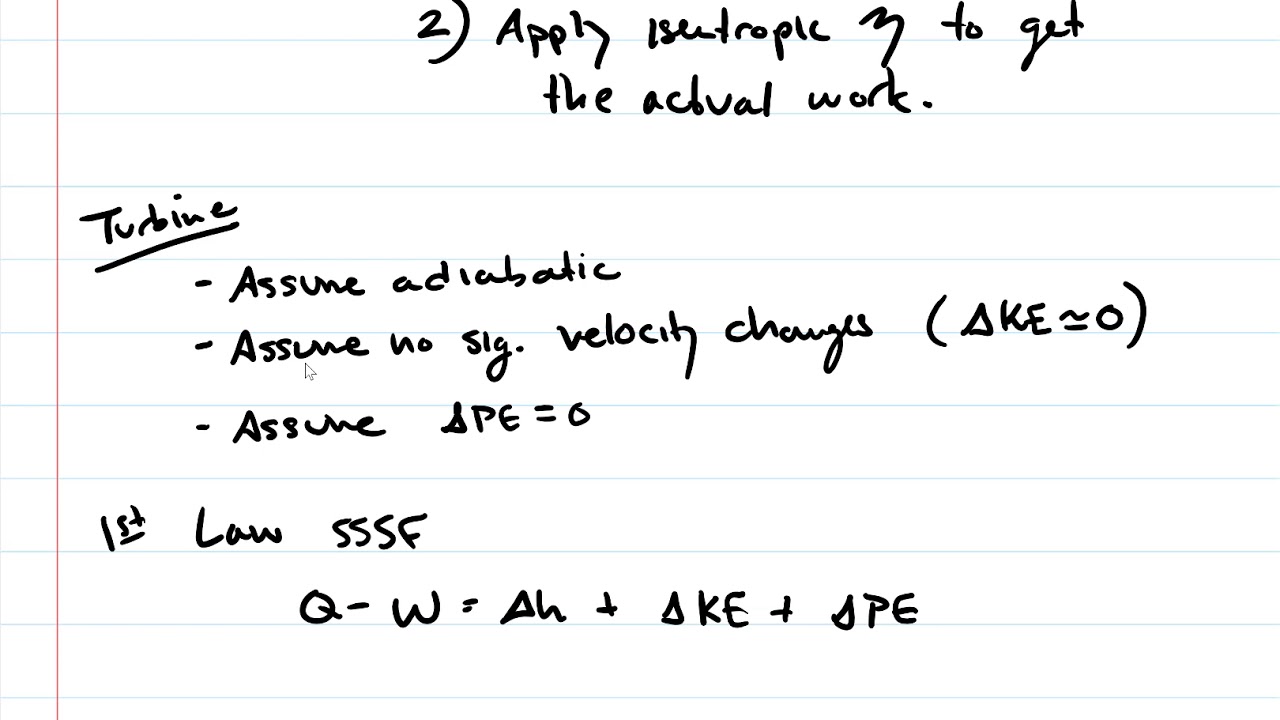 2) Apply isentropic η to get
the actual work.
Turbine
- Assume adiabatic
- Assume no sig. velocity changes (ΔKE ≃ 0)
- Assume ΔPE = 0
1st Law SSSF
Q - W = Δh + ΔKE + ΔPE